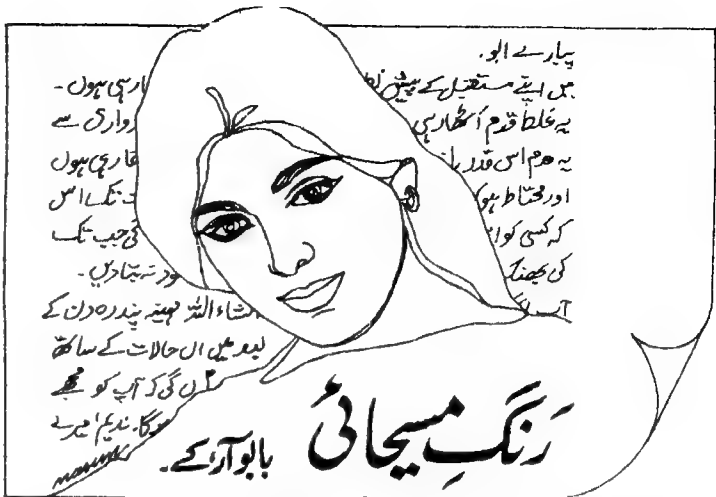 پیارے ابو۔
میں اپنے مستقبل کے پیش نظر ارہی ہوں۔
یہ غلط قدم اُٹھا رہی رواری سے
یہ قدم اس قدر را ھا رہی ہوں
اور محتاط ہوکر تک اس
کہ کسی کو ا کی جب تک
کی بھنک ود نہ بتا دیں۔
آپ انشاء اللہ مہینہ پندرہ دن کے
بعد میں ان حالات کے ساتھ
ں گی کہ آپ کو مجھ
ہوگا۔ ندیم امیرے
رَنگِ مسیحائی
بابو آر۔ کے۔